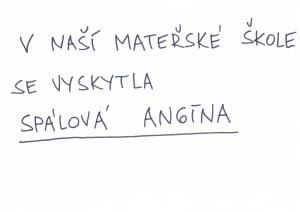 V NAŠÍ MATEŘSKÉ ŠKOLE
SE VYSKYTLA
SPÁLOVÁ ANGÍNA